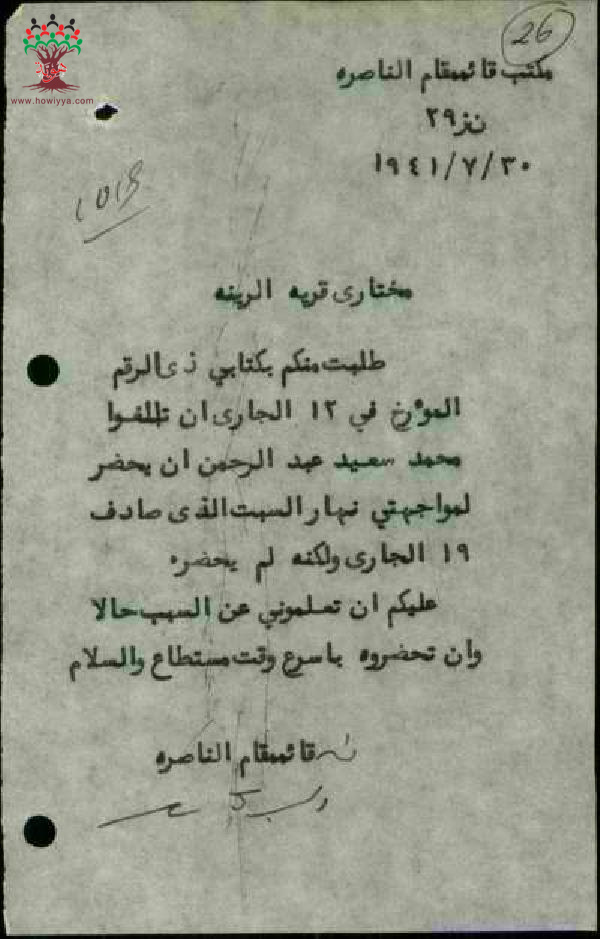 26
www.howiyya.com
مكتب قائممقام الناصره
نز٢٩
١٩٤١/٧/٣٠
مختارى قريه الرينه
طلبت منكم بكتابي ذى الرقم
المؤرخ في ١٢ الجارى ان تبلغوا
محمد سعيد عبد الرحمن ان يحضر
لمواجهتي نهار السبت الذى صادف
١٩ الجارى ولكنه لم يحضره
عليكم ان تعلموني عن السبب حالا
وان تحضروه باسرع وقت مستطاع والسلام
قائممقام الناصره